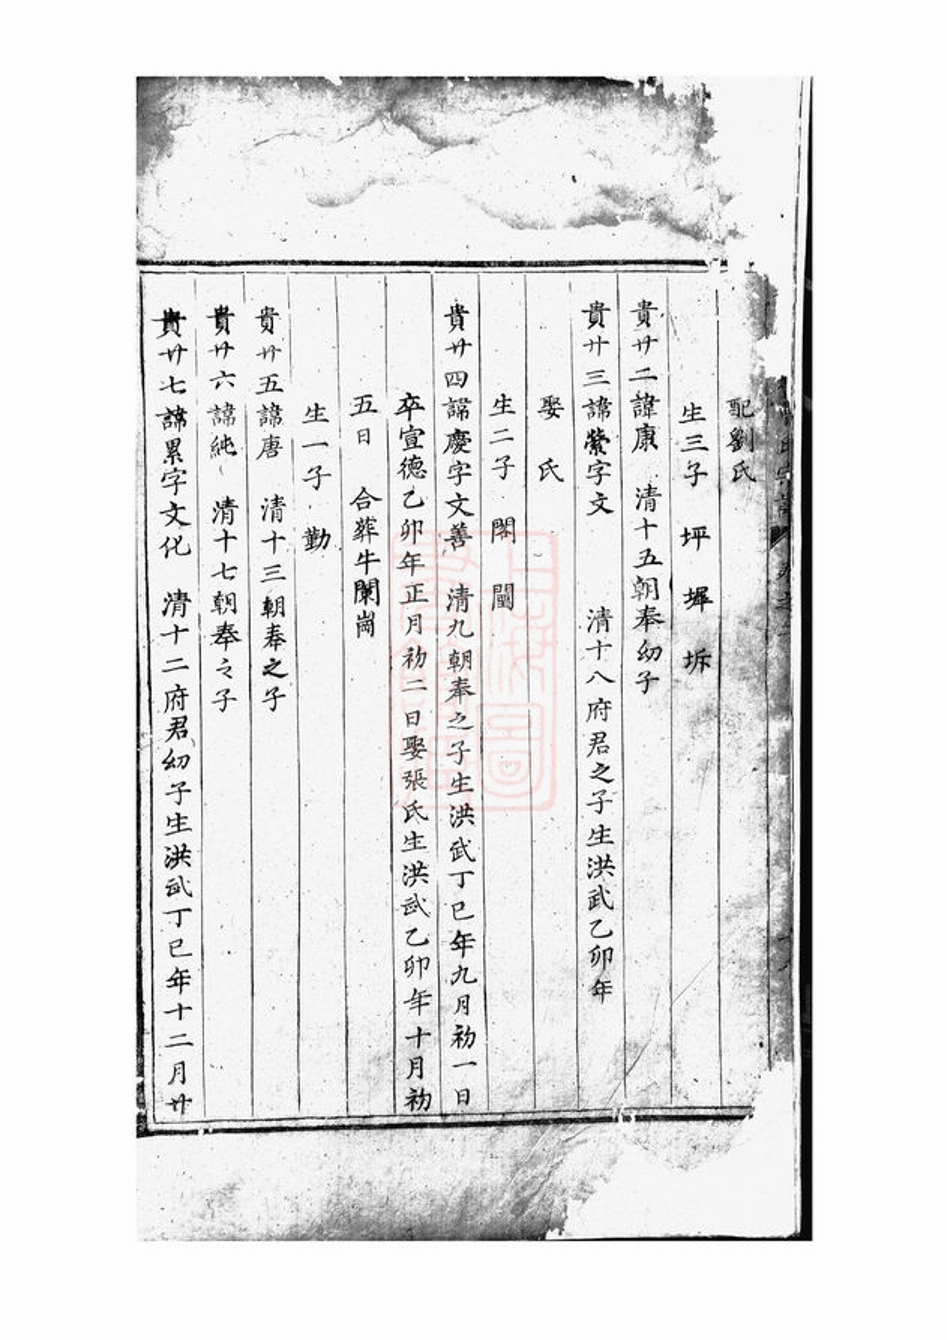 配劉氏
生三子 坪 墀 坼
貴廿二諱康 清十五朝奉幼子
貴廿三諱縈字文 清十八府君之子生洪武乙卯年
娶 氏
生二子 閣 闓
貴廿四諱慶字文善 清九朝奉之子生洪武丁巳年九月初一日
卒宣德乙卯年正月初二日娶張氏生洪武乙卯年十月初
五日 合葬牛闌崗
生一子 勤
貴廿五諱唐 清十三朝奉之子
貴廿六諱純 清十七朝奉之子
貴廿七諱累字文化 清十二府君幼子生洪武丁巳年十二月廿